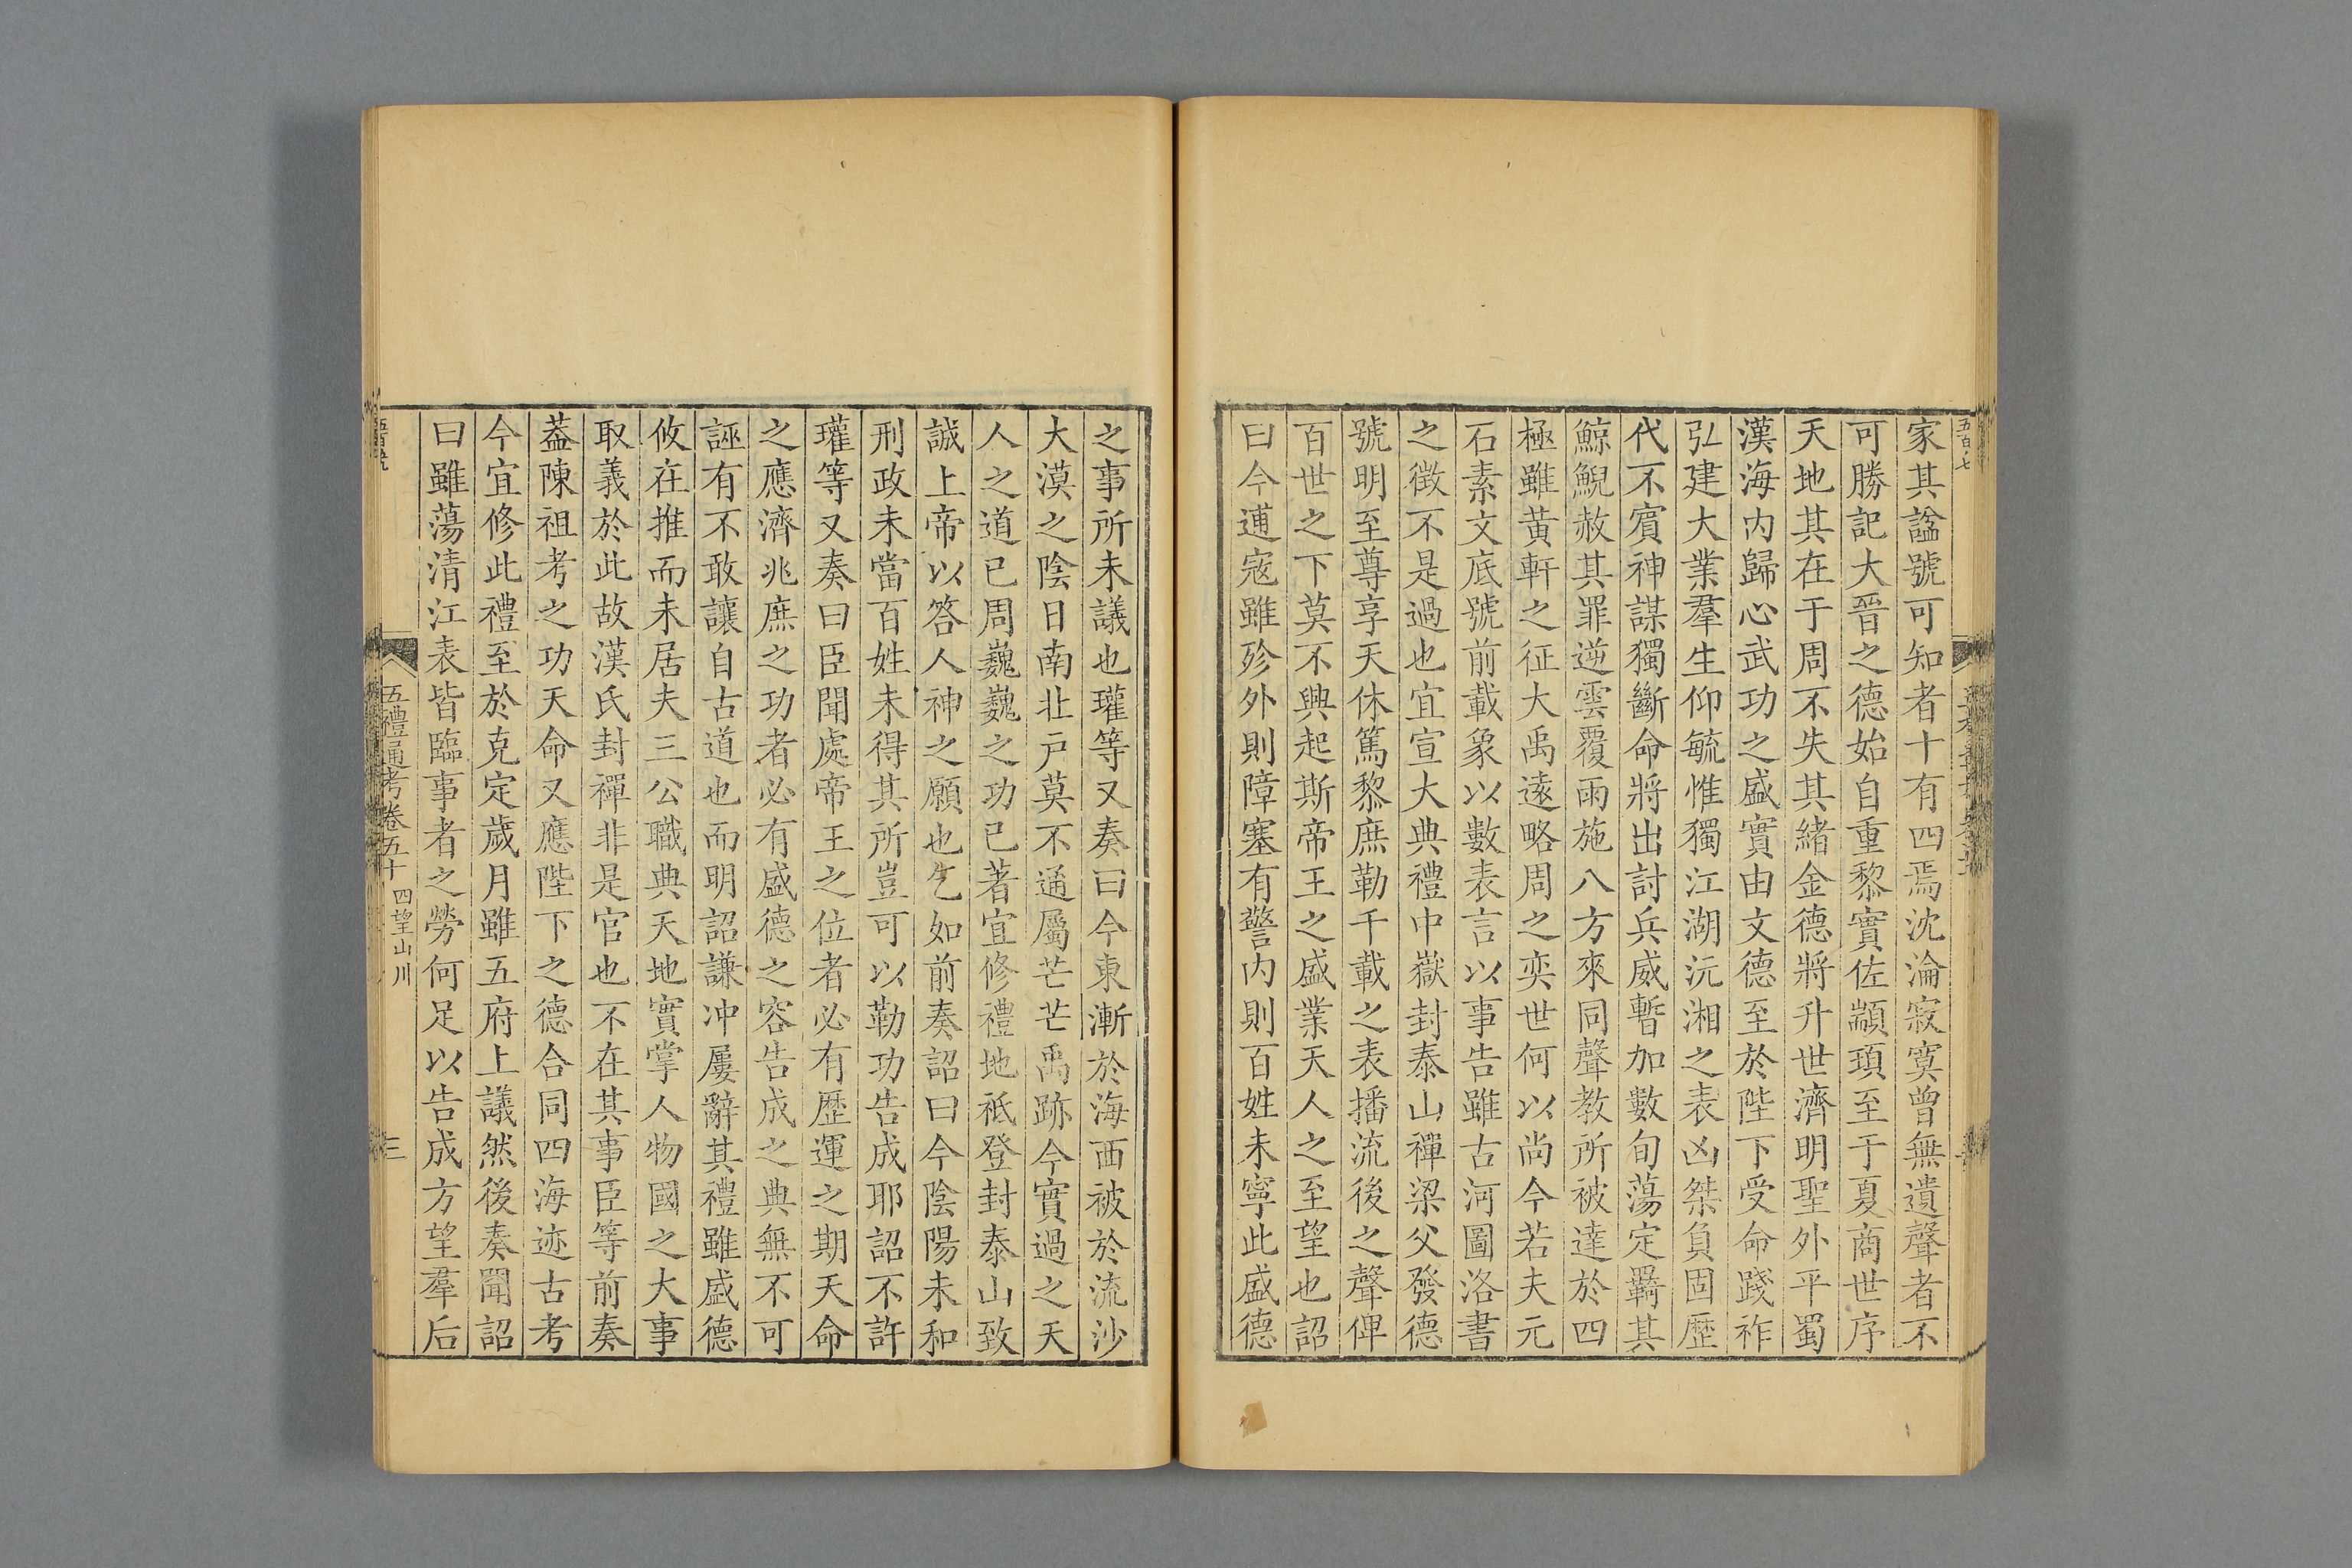 家其謚號可知者十有四焉沈淪寂寞曾無遺聲者不
可勝記大晉之德始自重黎實佐顓頊至于夏商世序
天地其在于周不失其緒金德將升世濟明聖外平蜀
漢海內歸心武功之盛實由文德至於陛下受命踐祚
弘建大業羣生仰毓惟獨江湖沅湘之表凶桀負固歷
代不賓神謀獨斷命將出討兵威暫加數旬蕩定羇其
鯨鯢赦其罪逆雲覆雨施八方來同聲教所被達於四
極雖黃軒之征大禹遠略周之奕世何以尚今若夫元
石素文底號前載象以數表言以事告雖古河圖洛書
之徵不是過也宜宣大典禮中嶽封泰山禪梁父發德
號明至尊享天休篤黎庶勒千載之表播流後之聲俾
百世之下莫不興起斯帝王之盛業天人之至望也詔
曰今逋寇雖殄外則障塞有警內則百姓未寧此盛德
之事所未議也瓘等又奏曰今東漸於海西被於流沙
大漠之陰日南北戶莫不通屬芒芒禹跡今實過之天
人之道已周巍巍之功已著宜修禮地祗登封泰山致
誠上帝以答人神之願也乞如前奏詔曰今陰陽未和
刑政未當百姓未得其所豈可以勒功告成耶詔不許
瓘等又奏曰臣聞處帝王之位者必有歷運之期天命
之應濟兆庶之功者必有盛德之容告成之典無不可
誣有不敢讓自古道也而明詔謙冲屢辭其禮雖盛德
攸在推而未居夫三公職典天地實掌人物國之大事
取義於此故漢氏封禪非是官也不在其事臣等前奏
葢陳祖考之功天命又應陛下之德合同四海迹古考
今宜修此禮至於克定歲月雖五府上議然後奏聞詔
曰雖蕩清江表皆臨事者之勞何足以告成方望羣后
五禮通考卷五十 四望山川 三